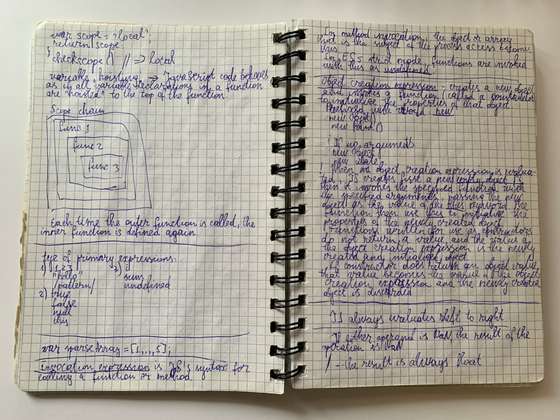 var scope = "local"
return scope
}
checkscope() // => local
variables hoisting => JavaScript code behaves
as if all variable declarations in a function
are "hoisted" to the top of the function
Scope chain
func 1
func 2
func 3
Each time the outer function is called, the
inner function is defined again
type of primary expressions:
1) 1,2,3 3)
"hello" sum;
/pattern/ undefined
2) true
false
null
this
var sparseArray = [1,,,5];
invocation expression is JS's syntax for
calling a function or method
In method invocation, the object or array
that is the subject of the process access becomes
this.
In ES5 strict mode, functions are invoked
with this as undefined
Object creation expression - creates a new object
and invokes a function called a constructor
to initialize the properties of that object
keyword new
new Object()
new Point()
If no arguments
new Object
new Date
When an object creation expression is evaluated,
JS creates first a new empty object,
then it invokes the specified function with
the specified arguments, passing the new
object as the value of the this keyword. The
function can use this to initialize the
properties of the newly created object
Functions written for use as constructors
do not return a value and the value of
the object creation expression is the newly
created and initialized object
If constructor does return an object value,
that value becomes the value of the object
creation expression and the newly created
object is discarded
JS always evaluates left to right
If either operand is NaN the result of the
operation is NaN
/ - the result is always float